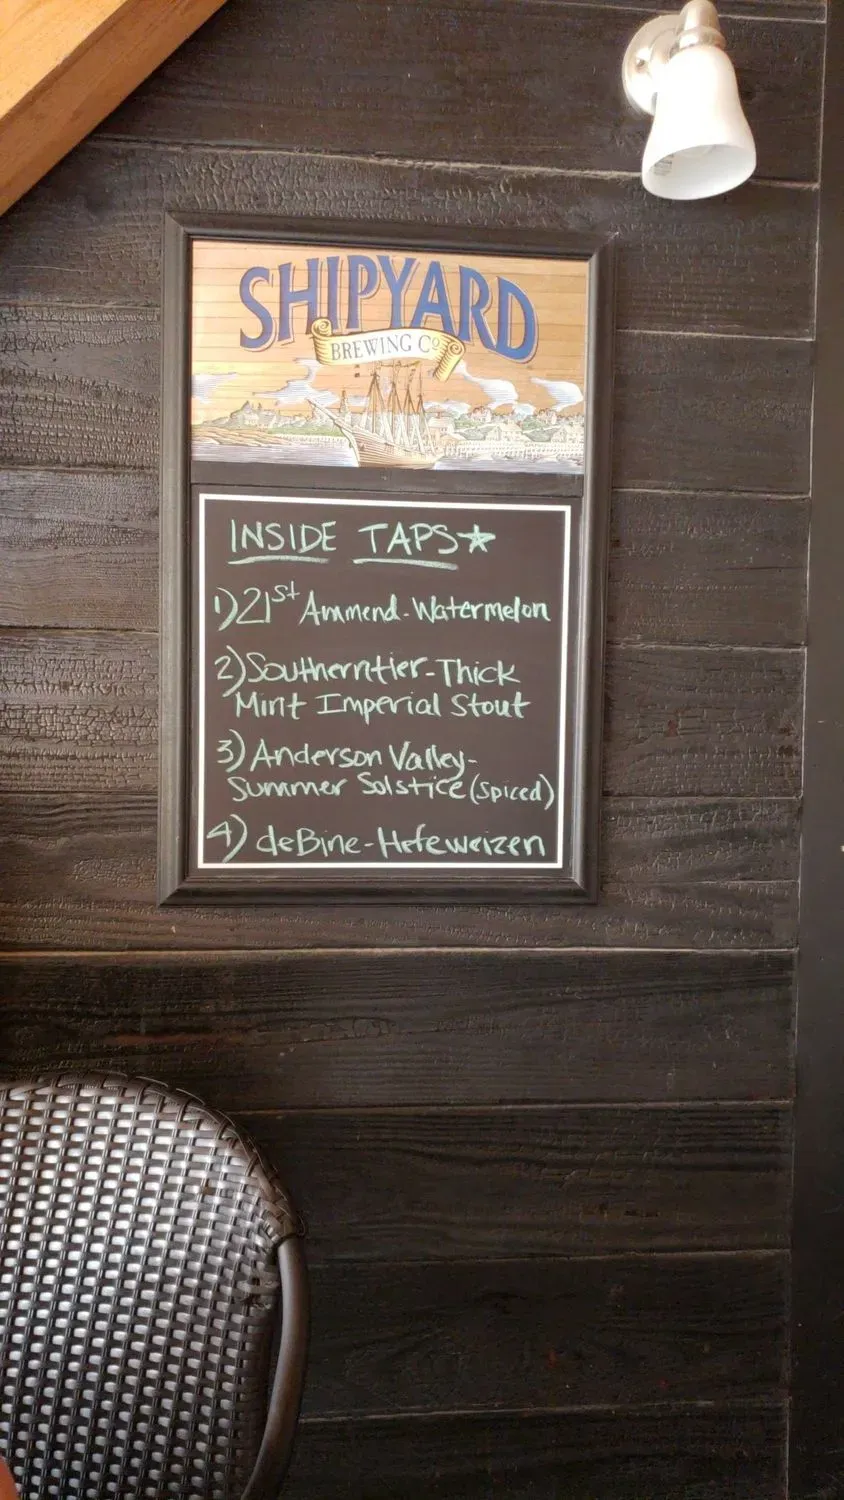 SHIPYARD
BREWING Co
INSIDE TAPS★
1) 21st Ammend-Watermelon
2) Southerntier-Thick
Mint Imperial Stout
3) Anderson Valley-
Summer Solstice (spiced)
4) deBine-Hefeweizen